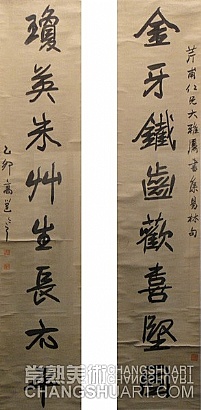 芹甫仁兄大雅屬書集易林句
金牙鐵齒歡喜堅
瓊英朱艸生長
乙卯高邕
常熟美術 CHANGSHUART
CHANGSHUART.COM